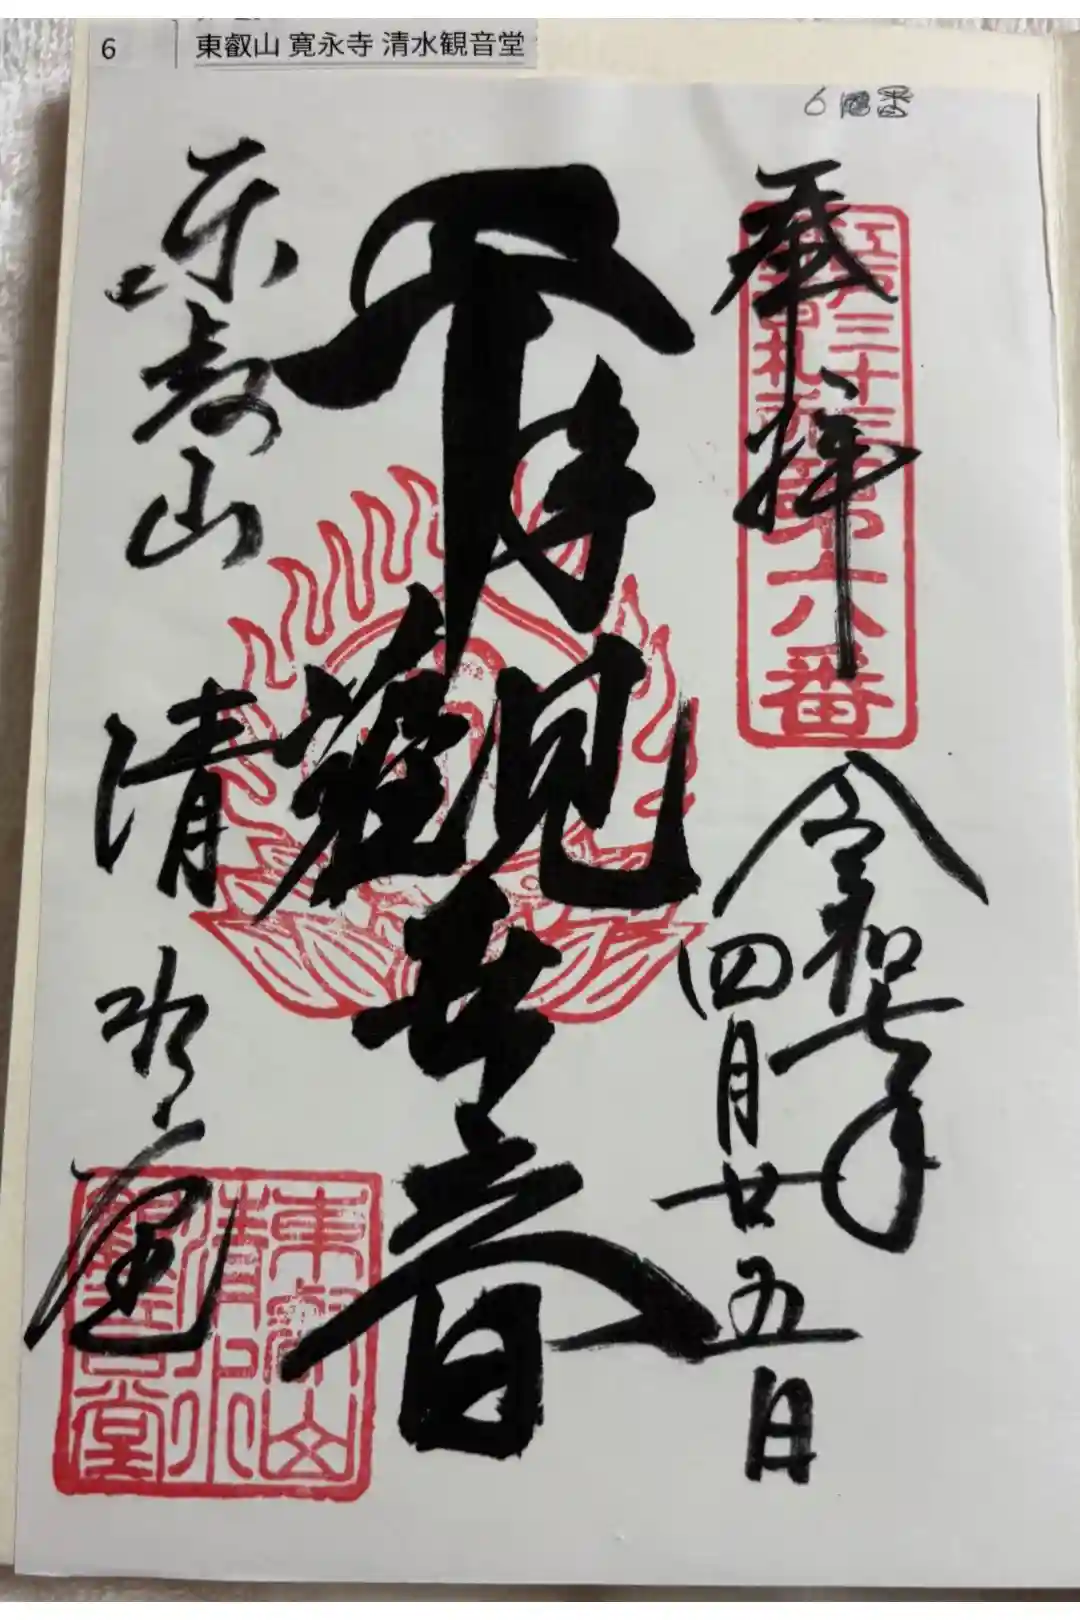 6 東叡山 寛永寺 清水観音堂
6 番
奉拝
江戸三十三
札所第六番
令和七年
四月廿五日
千手観世音
東叡山
清水堂
東叡山
清水
観音堂